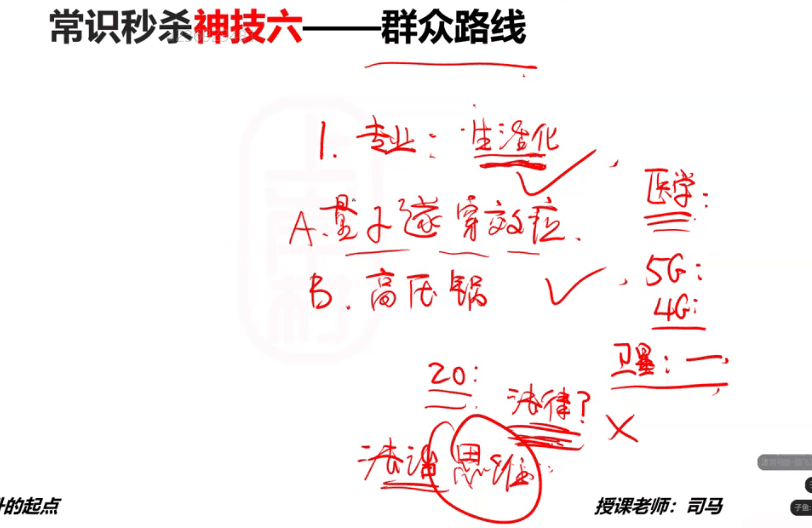 常识秒杀神技六——群众路线
1. 专业：生活化
医学：
A. 量子遂穿效应.
B. 高压锅
5G：
4G：
卫星：一
20：
法律？
法治思维
升的起点
授课老师：司马